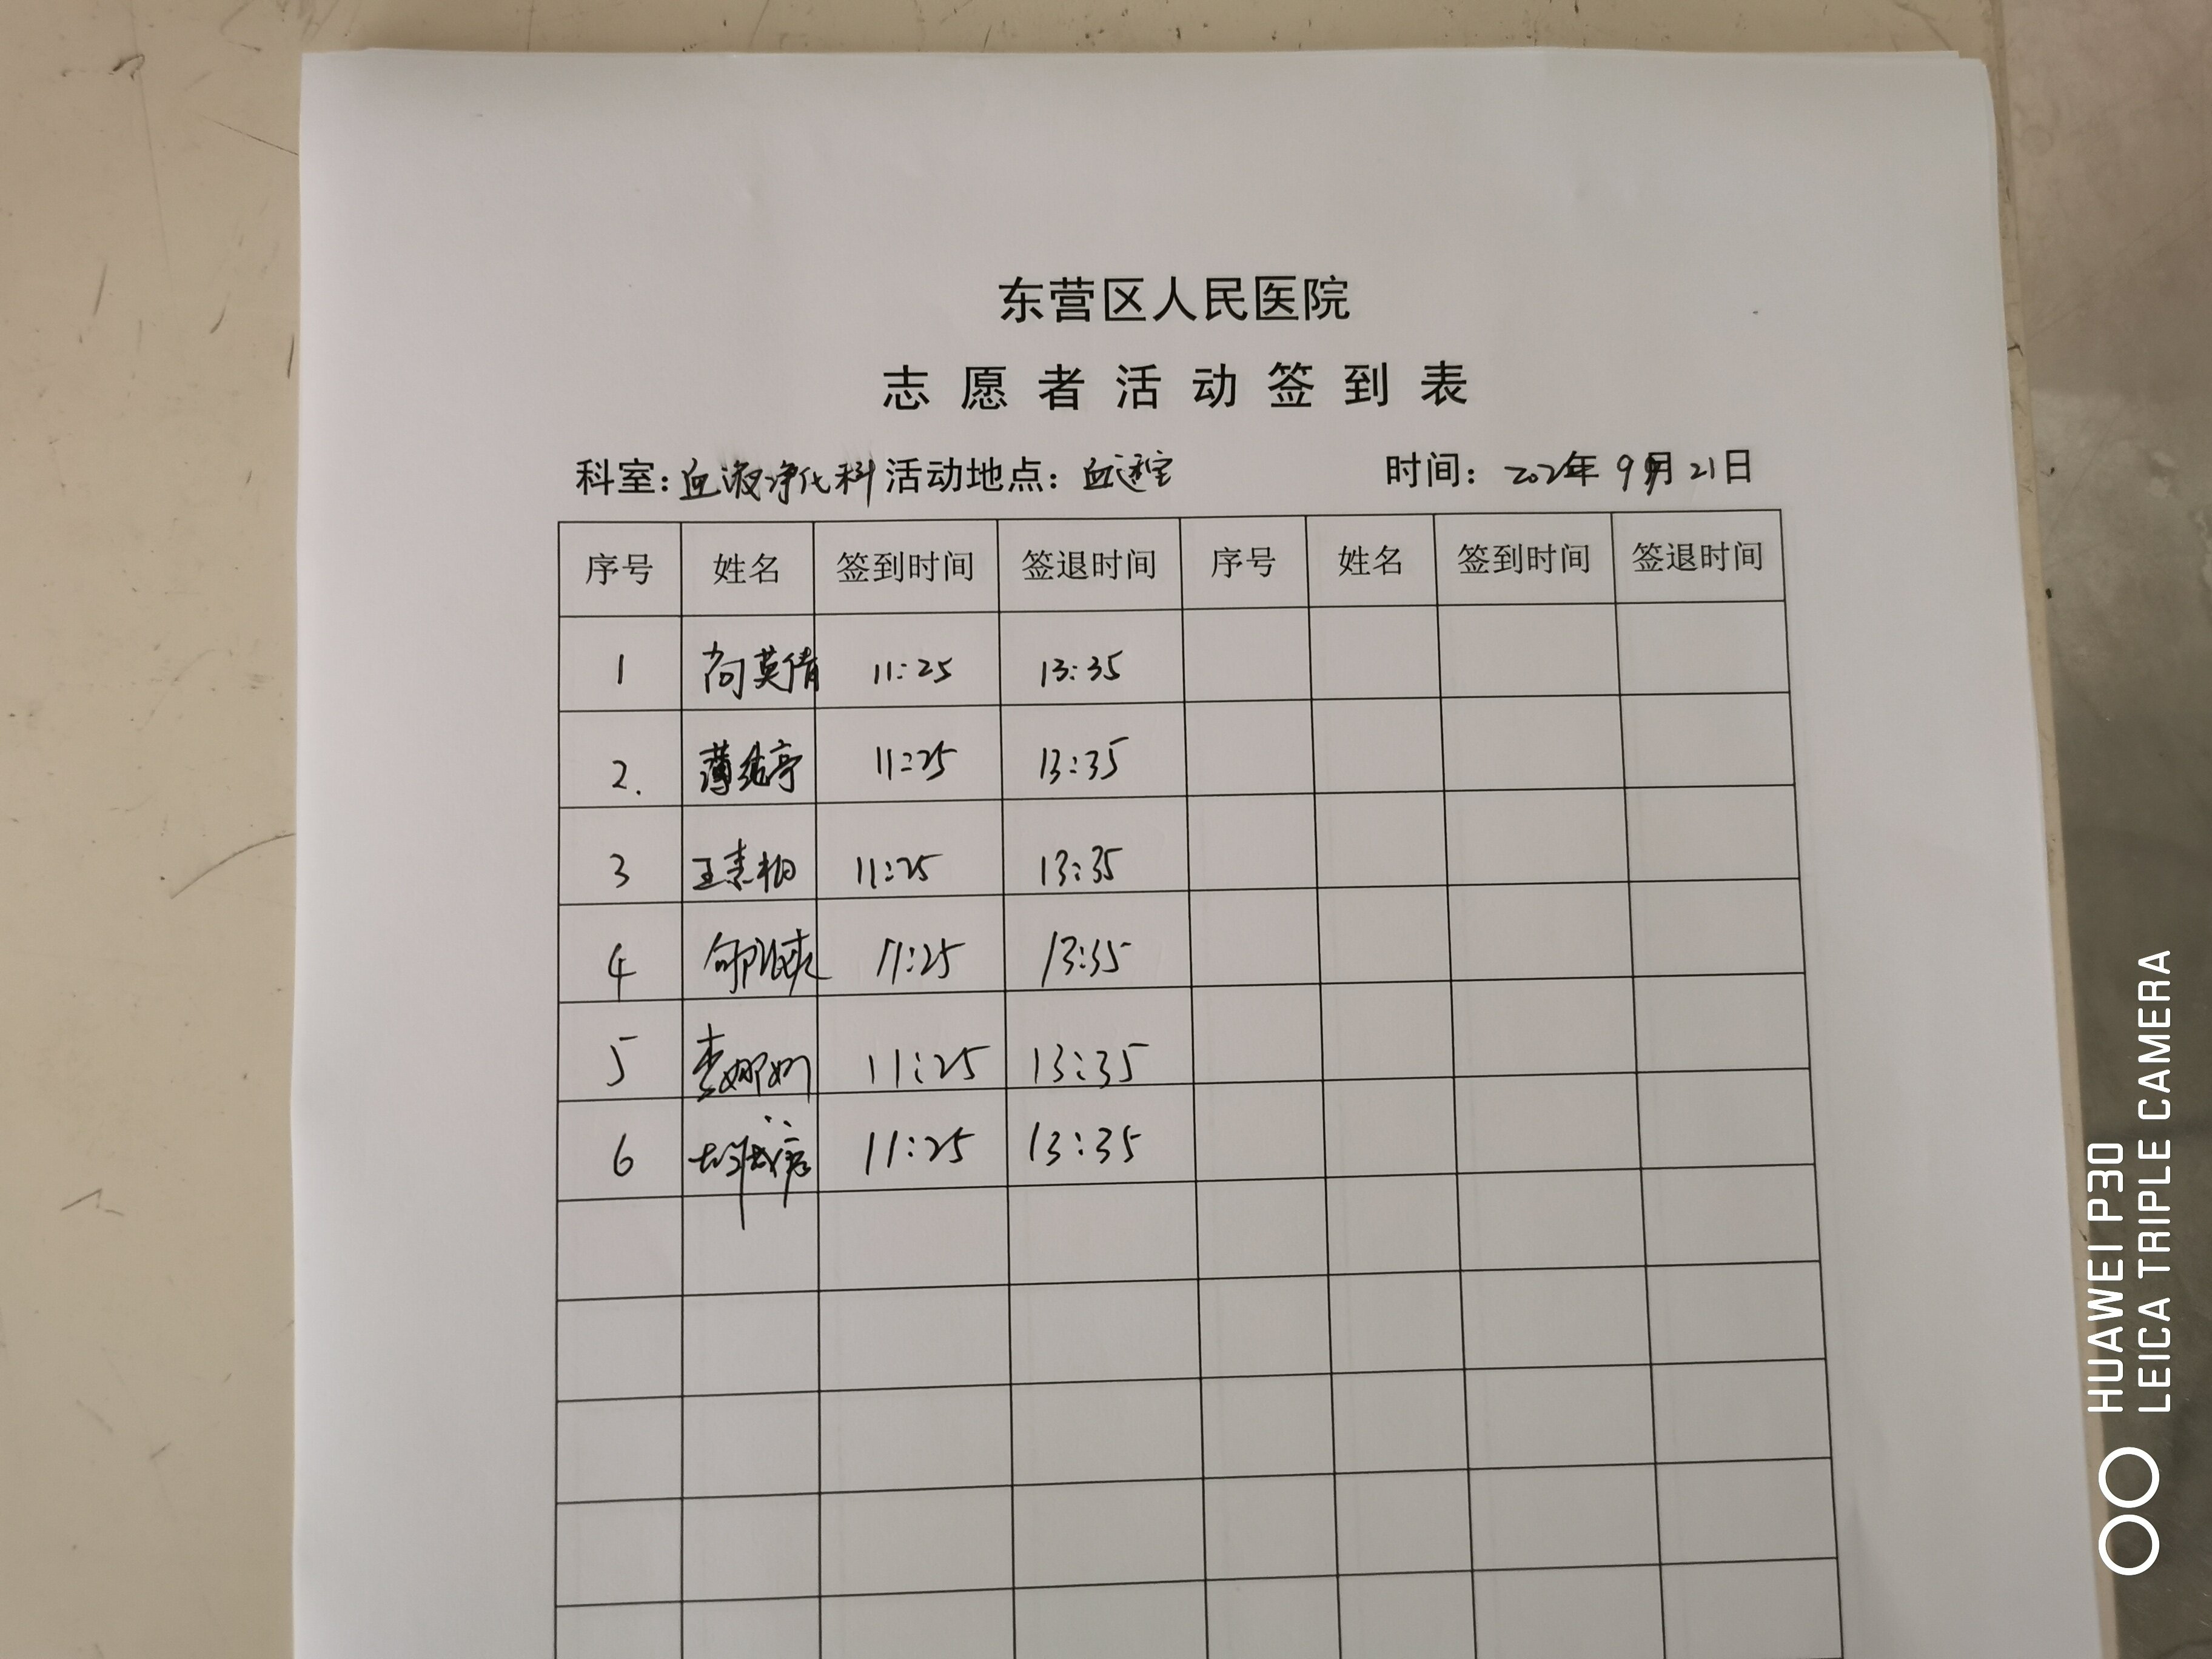 东营区人民医院
志愿者活动签到表
科室：血液净化科 活动地点：血透室 时间：202 年 9月 21日
序号 姓名 签到时间 签退时间 序号 姓名 签到时间 签退时间
1 尚英倩 11:25 13:35
2. 薄 亭 11:25 13:35
3 王 11:25 13:35
4 11:25 13:35
5 李娜娜 11:25 13:35
6 11:25 13:35
HUAWEI P30
LEICA TRIPLE CAMERA